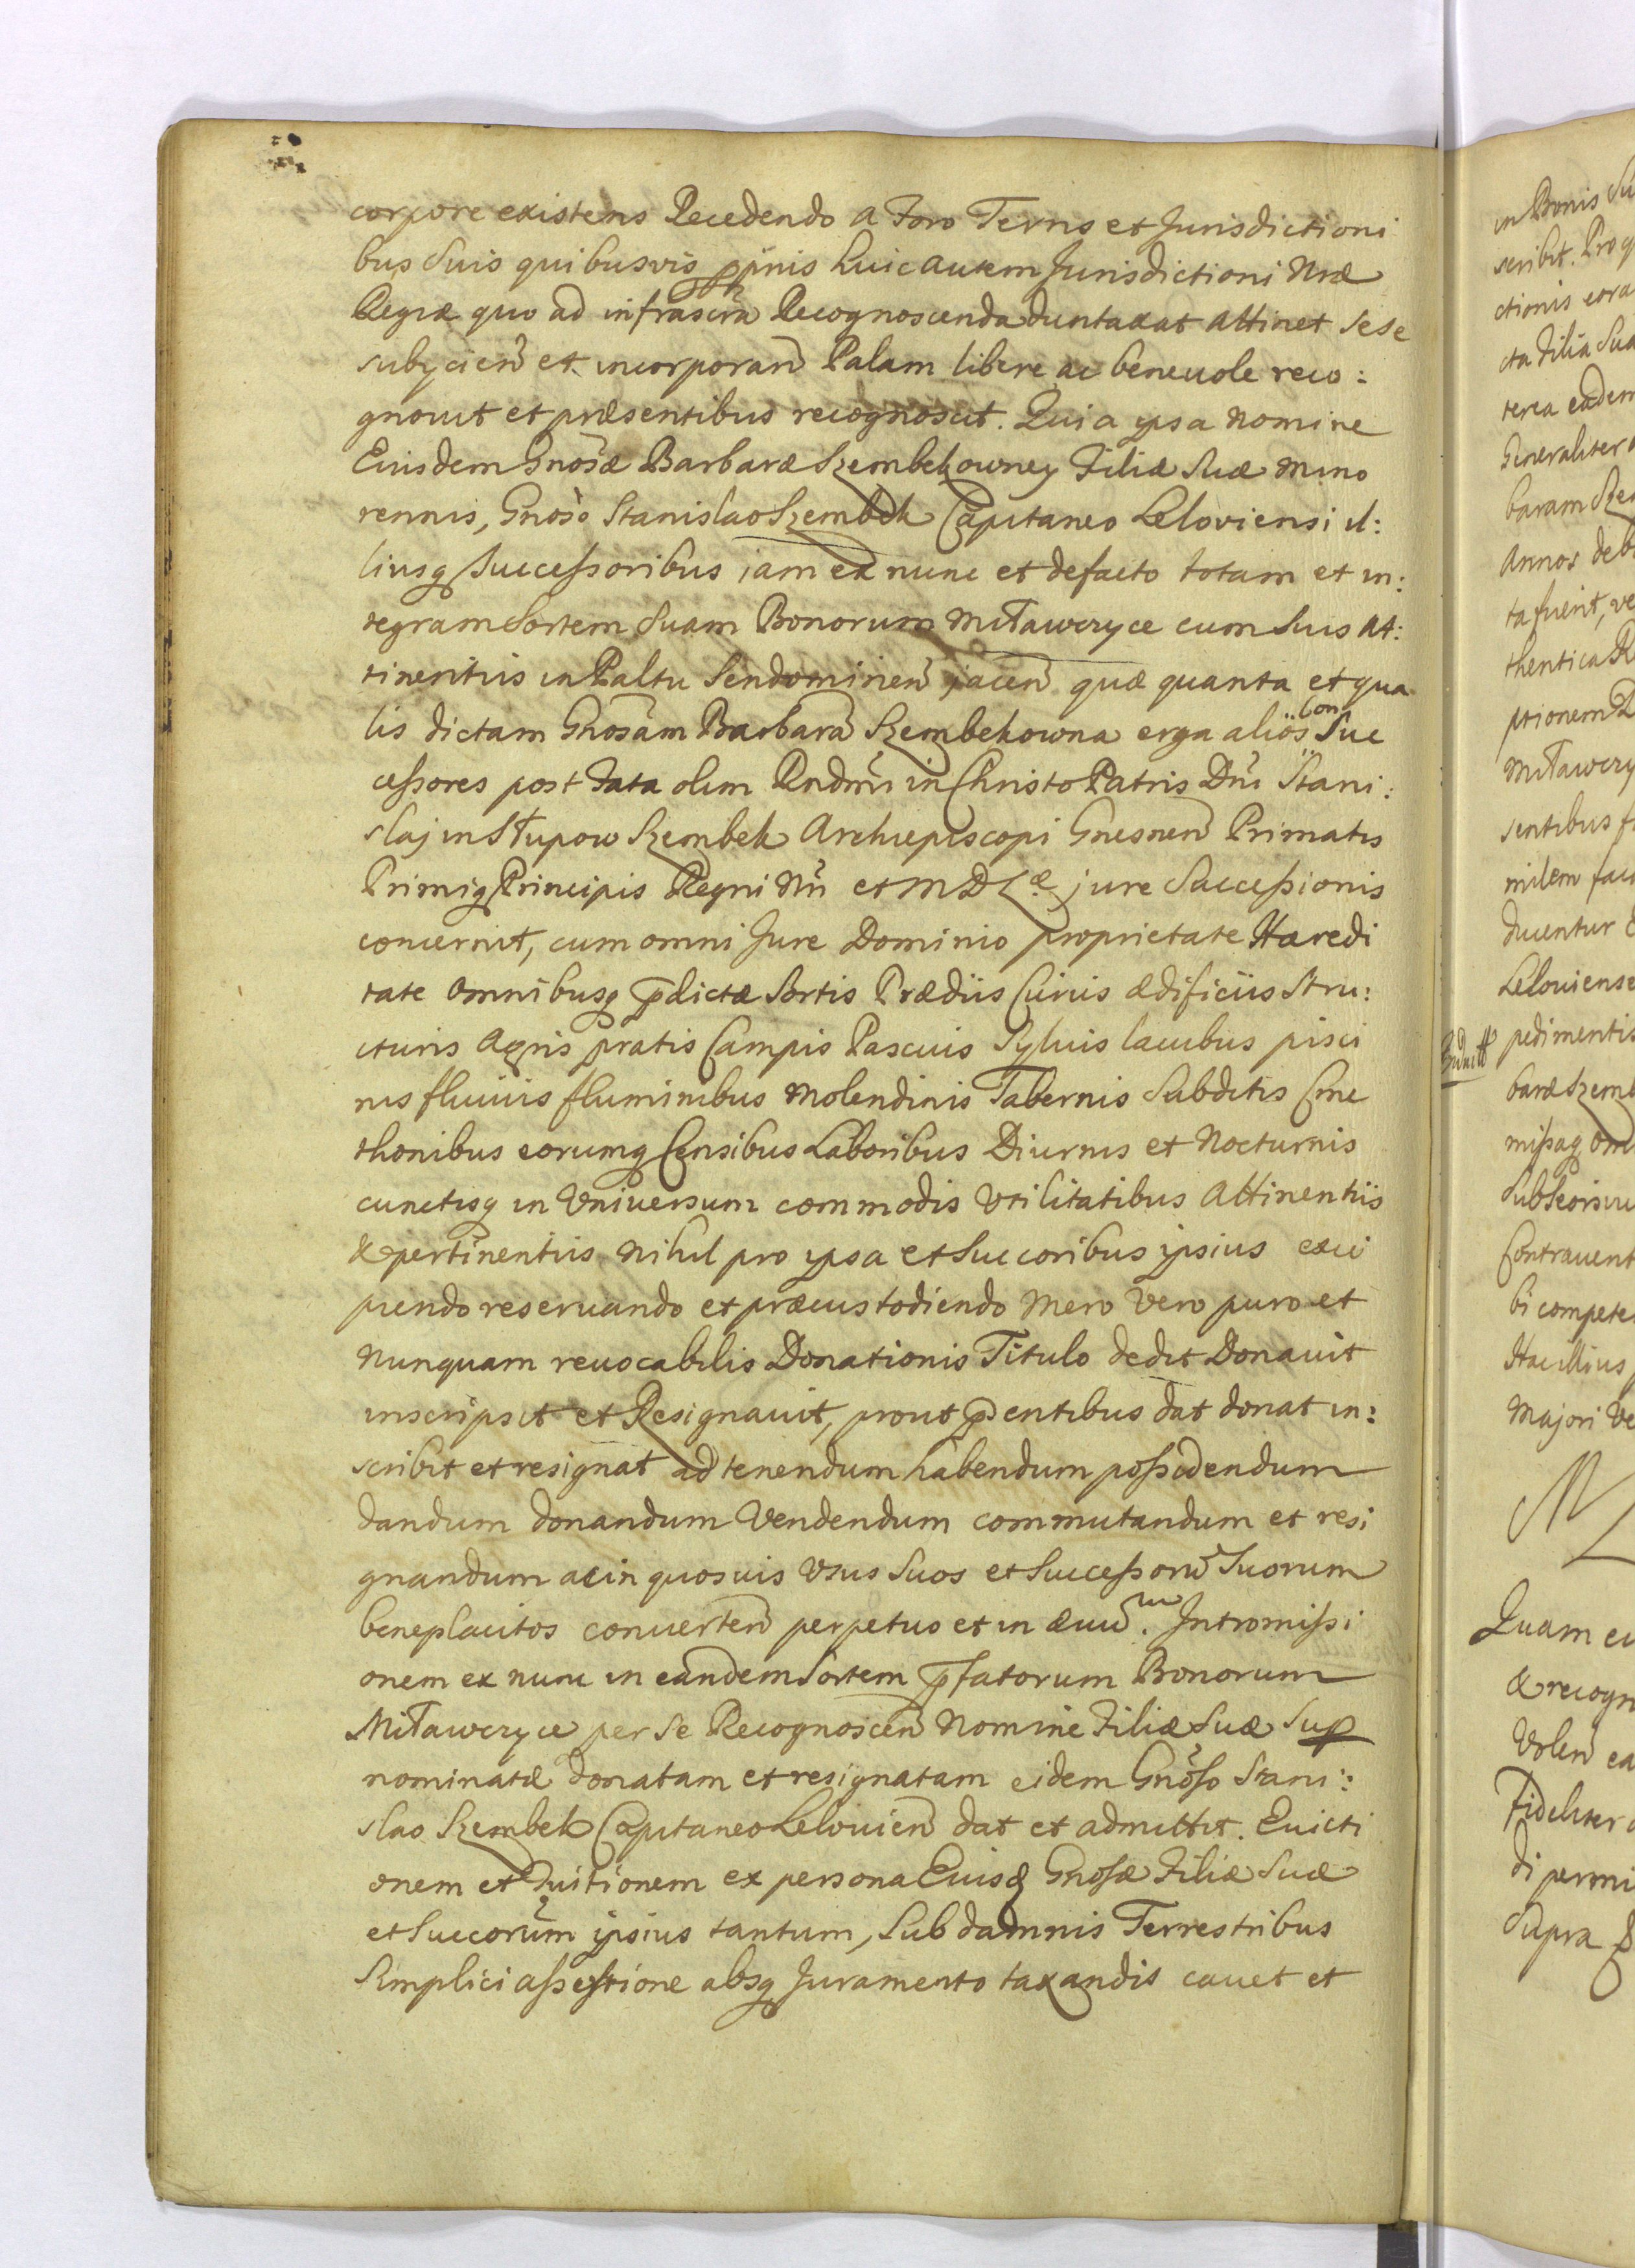 corpore existens Recedendo a Foro Terris et Jurisdictioni
bus Suis quibusvis ppriis huic autem Jurisdictioni Nræ
Regiæ quo ad infrascrã Recognoscenda duntaxat attinet sese
subÿcieñ et incorporañ Palam libere ac beneuole reco:
gnouit et præsentibus recognoscit. Quia ipsa nomine
Eiusdem Gnosæ Barbaræ Szembekowney Filiæ Suæ mino
rennis, Gnoso Stanislao Szembek Capitaneo Leloviensi il:
liusq Successoribus iam ex nunc et defacto totam et in:
tegram Sortem Suam Bonorum Miławczyce cum Suis At:
tinentiis in Paltu Sendomirieñ jaceñ quæ quanta et qua
lis dictam Gnosam Barbarã Szembekowna erga alios Con
Suc
cessores post Fata olim Rndmi in Christo Patris Dni Stani:
slaj in Słupow Szembek Archiepiscopi Gnesneñ Primatis
Primiq Principis Regni Nri et M D L æ jure Successionis
concernit, cum omni Jure Dominio proprietate Hæredi
tate omnibusq pdictæ Sortis Prædiis Curiis ædificiis Stru:
cturis Agris pratis Campis Pascuis Syluis lacubus pisci
nis fluuiis fluminibus Molendinis Tabernis Subditis Cme
thonibus eorumq Censibus Laboribus Diurnis et Nocturnis
cunctisq in Vniuersum commodis Vtilitatibus Attinentiis
& pertinentiis nihil pro ipsa et Succoribus ipsius exci
piendo reseruando et præcustodiendo Mero Vero puro et
Nunquam reuocabilis Donationis Titulo dedit Donauit
inscripsit et Resignauit, prout pentibus dat donat in:
scribit et resignat ad tenendum habendum possidendum
dandum donandum Vendendum commutandum et resi
gnandum ac in quosuis Vsus Suos et Successorũ Suorum
beneplacitos conuerteñ perpetuo et in æuũ. Intromissi
onem ex nunc in eandem Sortem pfatorum Bonorum
Miławczyce per se Recognosceñ Nomine Filiæ Suæ Sup
nominatæ donatam et resignatam eidem Gnoso Stani:
slao Szembek Capitaneo Lelouieñ dat et admittit. Euicti
onem et Tuitionem ex persona Eiusd Gnosæ Filiæ Suæ
et Succorum ipsius tantum, Sub damnis Terrestribus
Simplici assertione absq Juramento taxandis cauet et
in Bonis Su
scribit. Pro q
ctionis cora
cta Filia Sua
terea eadem
Generaliter
baram Sze
Annos deb
ta fuerit, ve
thentica R
ptionem
Miławczy
sentibus f
milem faci
ducentur
Lelouiense
pedimentis
baræ Szemb
missaq om
Sub seorsiu
Contrauent
bi compete
Hac illius
Majori Ve
Quam eu
& recogn
Voleñ ea
Fideliter
di permi
Supra